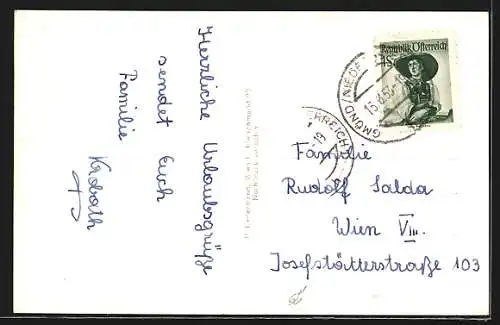 Herzliche Urlaubsgrüße
sendet Euch
Familie
Republik Österreich
1S
GMÜND/NIEDE
ERREICH
Familie
Rudolf Salda
Wien VIII.
Josefstätterstraße 103